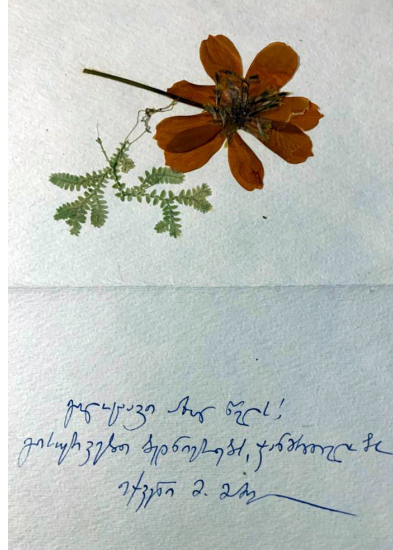 გილოცავთ ახალ წელს!
გისურვებთ ბედნიერებას, ჯანმრთელობას
თქვენი მ.